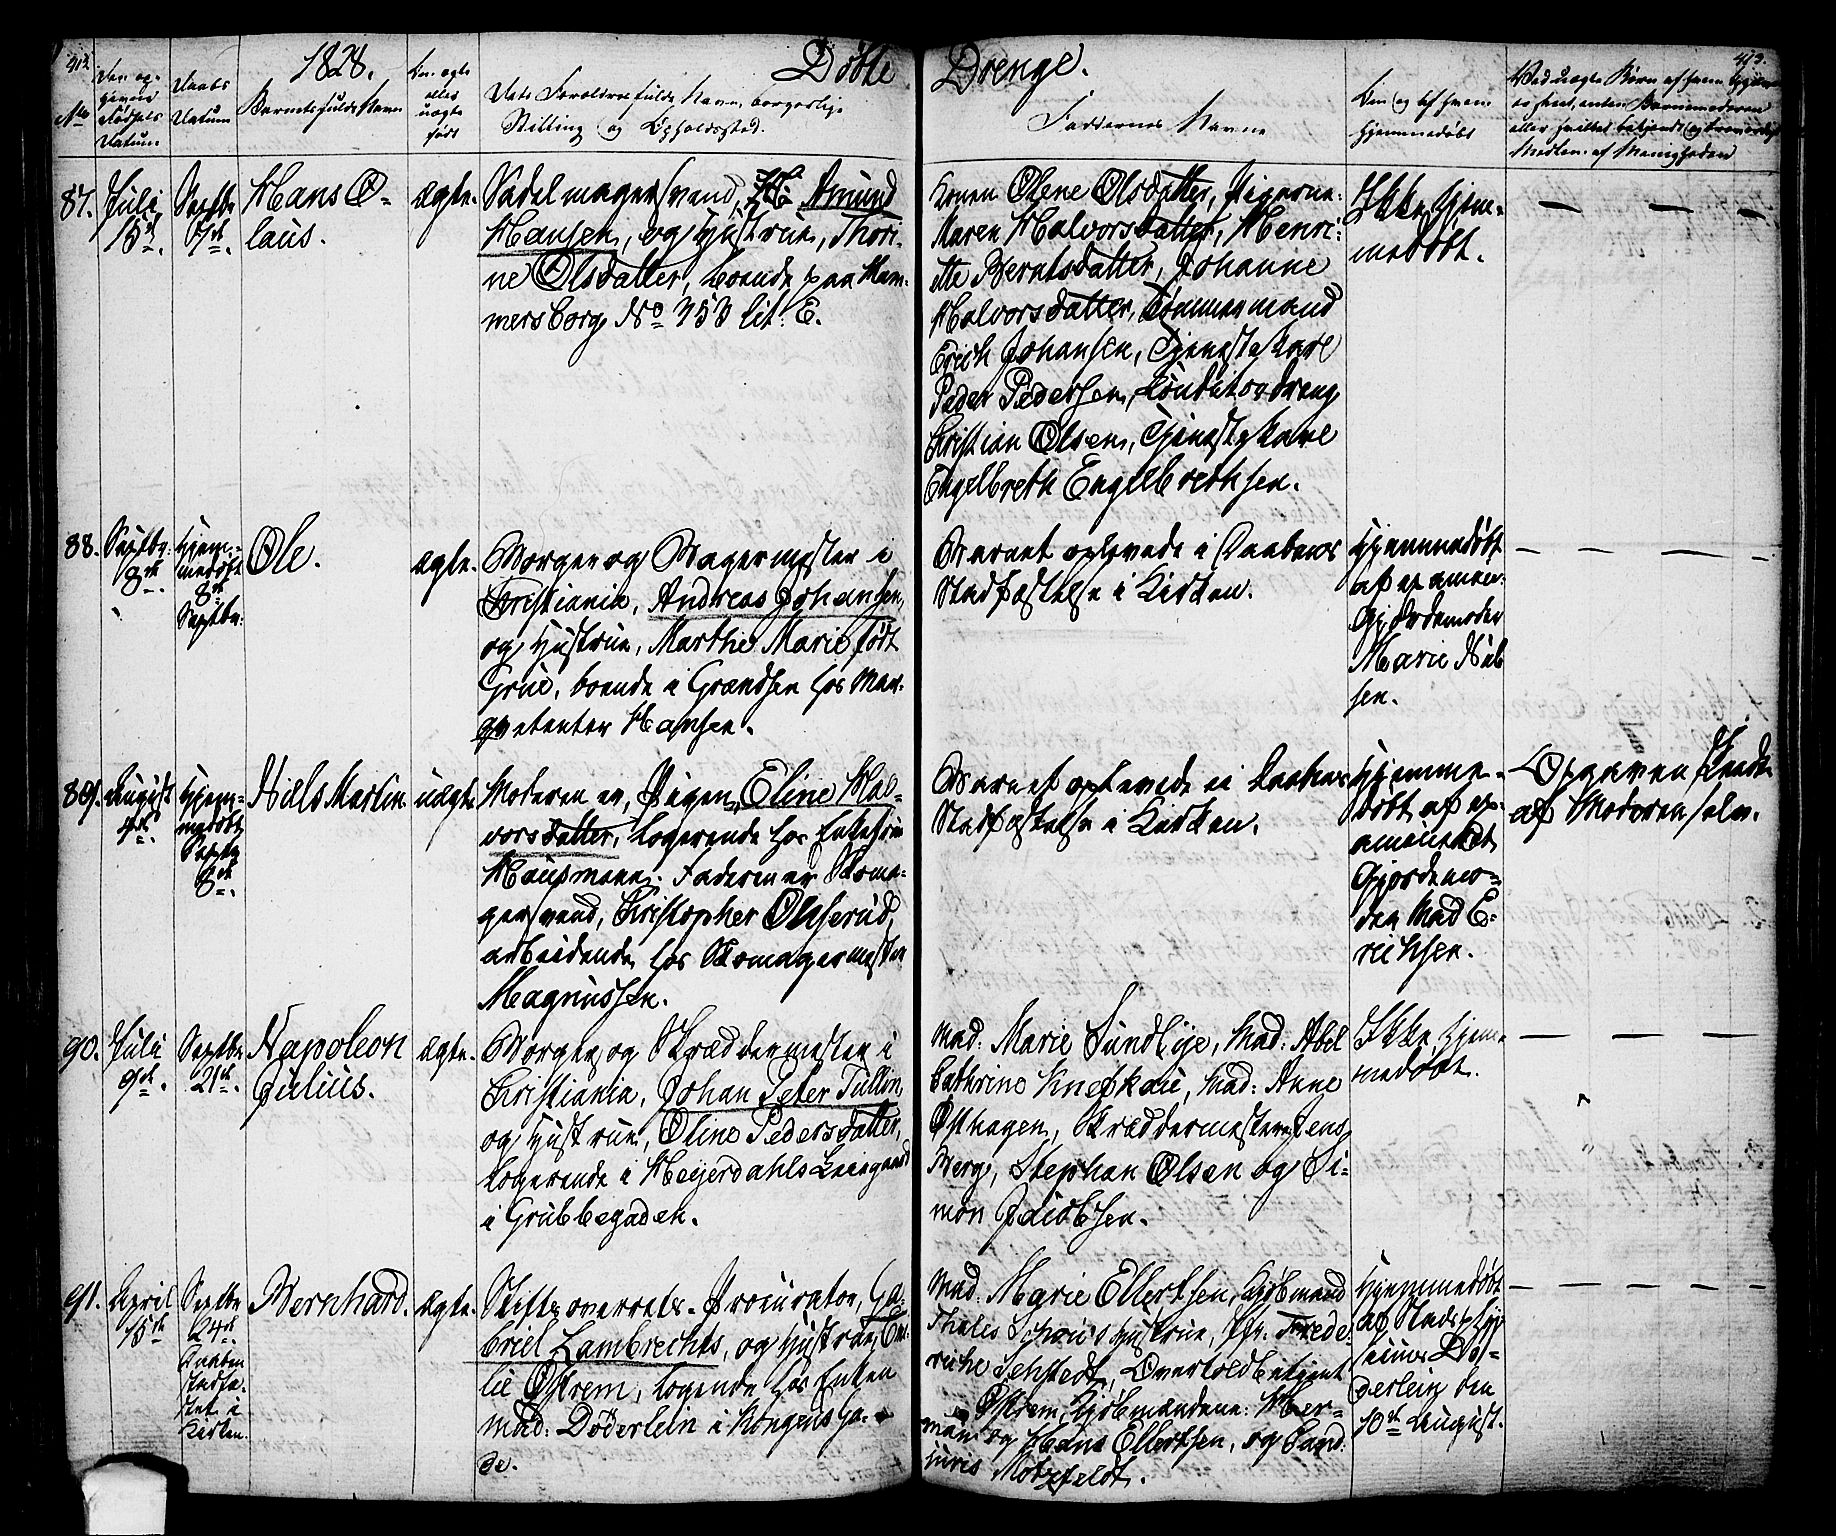 412.
1828.
Døbte Drenge.
413.
No
Den opgivne Fødsels Datum
Daabs Datum
Barnets fulde Navn
Om ægte eller uægte født
Dets Forældres fulde Navn, borgerlige
Stilling og Opholdssted.
Faddernes Navne
Om og af hvem
hjemmedøbt
Ved uægte Børn af hvem
eller hvilket bekjendt og troværdigt
Medlem af Menigheden
87.
Juli
15de.
Septbr
7de.
Hans O-
laus.
ægte.
Sadelmagersvend, Amund
Hansen, og Hustrue, Thori-
ne Olsdatter, boende paa Ham-
mersborg No 353 lit: E.
Konen Olene Olsdatter, Pigerne:
Maren Halvorsdatter, Henri-
ette Berntsdatter, Johanne
Halvorsdatter, Tømmermand
Erich Johansen, Tjenestekarl
Peder Pedersen, Conditordreng
Christian Olsen, Tjenestekarl
Engelbreth Engelbrethsen.
Ikke hjem-
medøbt.
88.
Septbr.
8de.
Hjem-
medøbt
8de
Septbr.
Ole.
ægte.
Borger og Bagermester i
Christiania, Andreas Johansen,
og Hustrue, Marthe Marie født
Grue, boende i Grændsen hos Mar-
qvetenter Hansen.
Barnet oplevede ei Daabens
Stadfæstelse i Kirken.
Hjemmedøbt
af examen:
Gjordemoder
Marie Niel
sen.
89.
August
4de.
Hjem-
medøbt
Septbr
8de.
Niels Martin
uægte.
Moderen er, Pigen, Eline Hal-
vorsdatter, logerende hos Enkefrue
Hausmann. Faderen er Skoma-
gersvend, Christopher Olsserud,
arbeidende hos Skomagermester
Magnussen.
Barnet oplevede ei Daabens
Stadfæstelse i Kirken.
Hjemme-
døbt af ex-
amineret
Gjordemo-
der Mad E-
richsen.
Opgaven skeede
af Moderen selv.
90.
Juli
9de.
Septbr
21de.
Napoleon
Julius.
ægte.
Borger og Skræddermester i
Christiania, Johan Peter Tullin,
og Hustrue, Oline Pedersdatter,
logerende i Heyerdahls Leiegaard
i Grubbegaden.
Mad: Marie Sundbye, Mad: Abel
Cathrine Knefkau, Mad: Anne
Østhagen, Skræddermesterne Jens
Berg, Stephan Olsen og Si-
mon Jacobsen.
Ikke hjem-
medøbt.
91.
April
15de
Septbr
24de.
Daaben
stadfæ-
stet i
Kirken.
Bernhard.
ægte.
Stiftsoverrets-Procurator, Ga-
briel Lambrechts, og Hustrue, Em-
lie Østrem, logerende hos Enken
Mad: Døderlein i Kongens Ga-
de.
Mad: Marie Ellertsen, Kjøbmand
Thales Schous Hustrue, Jfr. Frede-
rikke Sehstedt, Overtoldbetjent
Østrem, Kjøbmændene: Her-
man og Hans Ellertsen, og Cand:
juris Motzfeldt.
Hjemmedøbt
af Stadsphy-
sicus Dø-
derlein den
10de August.